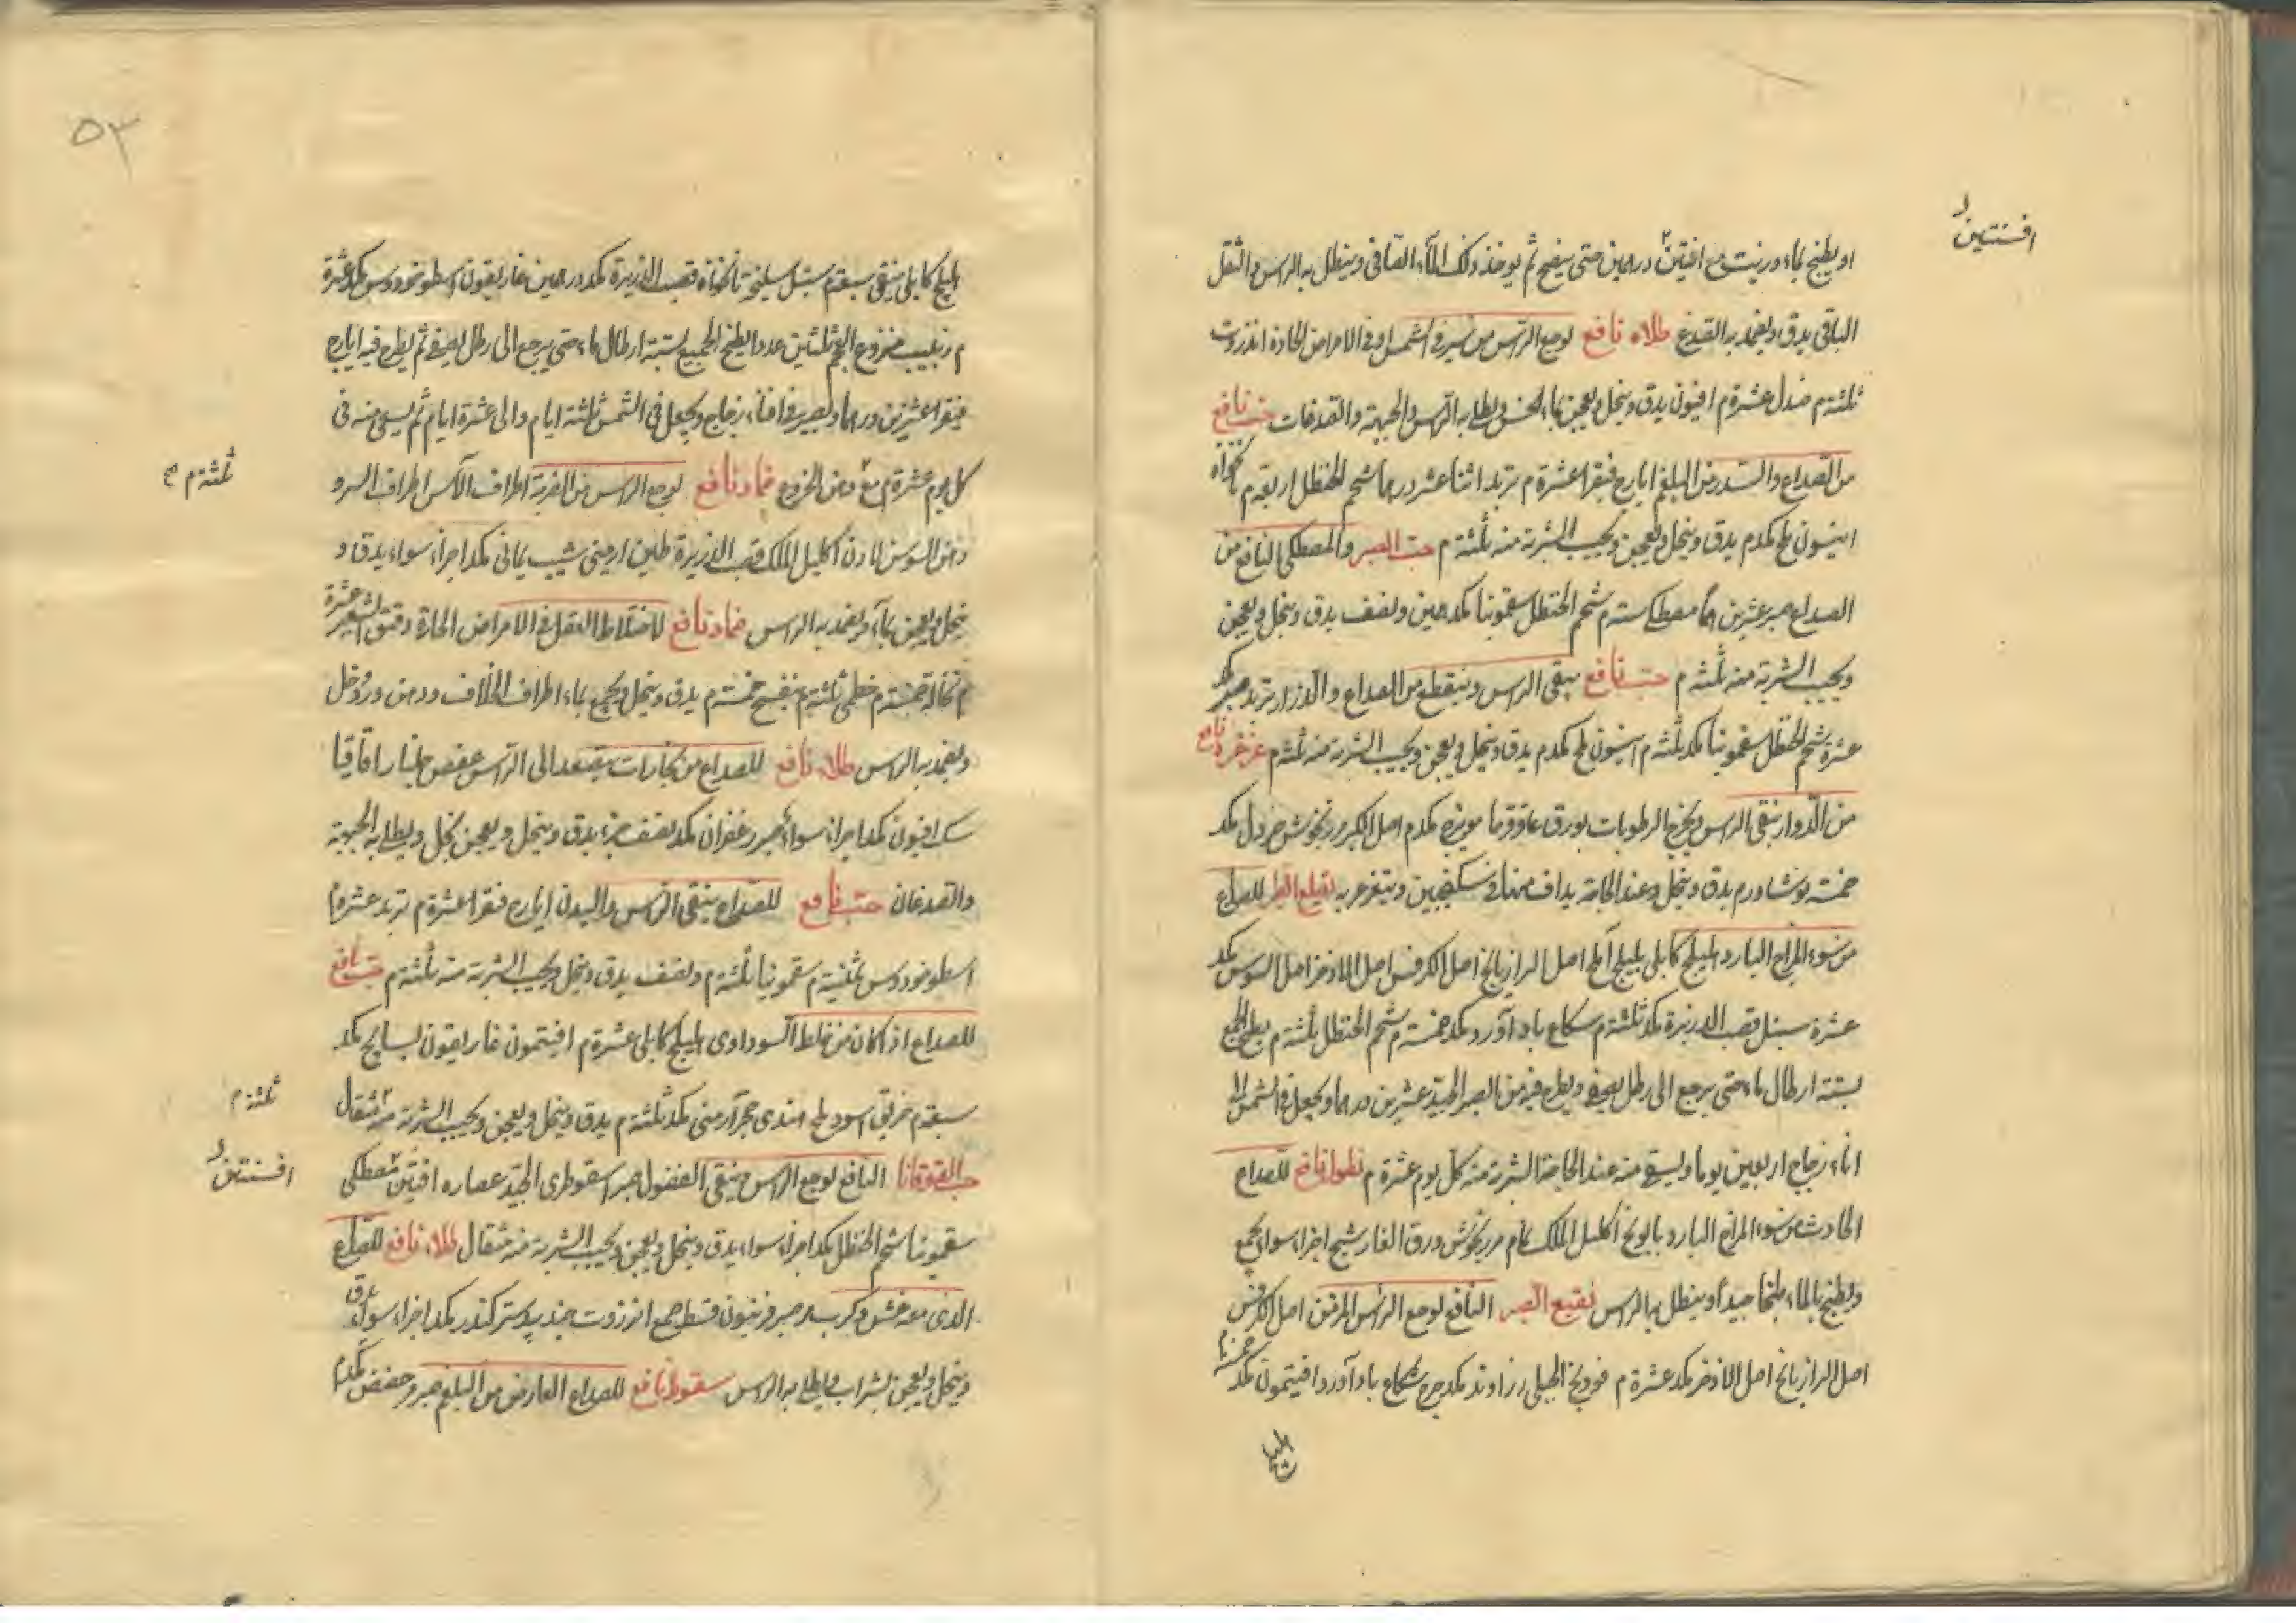 افسنتين
او يطبخ بماء وزيت مع افتين درهمين حتى ينضج ثم يوخذ ذلك الماء الصافى وينطل به الراس والثقل
الباقى يدق ويضمد به الصدغ طلاء نافع لوجع الراس من سير فى الشمس او فى الامراض الحادة انزروت
ثلثة م صندل عشرة م افيون يدق وينخل ويعجن بماء الخس ويطلا به الراس والجبهة والصدغات حب نافع
من الصداع والسدر من البلغم ايارج فيقرا عشرة م تربد اثنا عشر درهما شحم الحنظل اربعة م
انيسون ملح مكدم يدق وينخل ويعجن ويحبب الشربة منه ثلثة م حب الصبر والمصطكى النافع من
الصداع صبر عشرين مصطكى ستة م شحم الحنظل سقمونيا مكد درهمين ونصف يدق وينخل ويعجن
ويحبب الشربة منه ثلثة م حب نافع ينقى الراس وينقطع من الصداع والدوار تربد صبر مكد
عشرة شحم الحنظل سقمونيا مكد ثلثة م انيسون ملح مكدم يدق وينخل ويعجن ويحبب الشربة منه ثلثة م غرغرة نافع
من الدوار ينقى الراس ويخرج الرطوبات بورق عاقرقرحا مويزج مكدم اصل الكبر مرزنجوش خردل مكد
خمسة نوشادر م يدق وينخل وعند الحاجة يداف منها فى سكنجبين ويتغرغر به نقيع الصبر للصداع
من سوء المزاج البارد هليلج كابلى بليلج آملج اصل الرازيانج اصل الكرفس اصل الاذخر اصل السوس مكد
عشرة سنبل قصب الذريرة مكد ثلثة م شكاع باداورد مكد خمسة م شحم الحنظل ثلثة م يطبخ الجميع
بستة ارطال ماء حتى يرجع الى رطل يصفى ويطرح فيه من الصبر الجيد عشرين درهما ويجعل فى الشمس فى
اناء زجاج اربعين يوما ويسقى منه عند الحاجة الشربة منه كل يوم عشرة م نطول نافع للصداع
الحادث من سوء المزاج البارد بابونج اكليل الملك نمام مرزنجوش ورق الغار شيح اجزاء سواء يجمع
ويطبخ بالماء طبخا جيدا وينطل به الراس نقيع الصبر النافع لوجع الراس المزمن اصل الكرفس
اصل الرازيانج اصل الاذخر مكد عشرة م فودنج الجبلى زراوند مدحرج شكاع باداورد افتيمون مكد خمسة م
هليلج
٥٣
هليلج كابلى منقى سبعة م سنبل سليخة نانخواه قصب الذريرة مكد درهمين غاريقون اسطوخودوس مكد عشرة
م زبيب منزوع العجم ثلثين عددا يطبخ الجميع بستة ارطال ماء حتى يرجع الى رطل يصفى ثم يطرح فيه ايارج
فيقرا عشرين درهما ويصير فى اناء زجاج ويجعل فى الشمس ثلثة ايام والى عشرة ايام ثم يسقى منه فى
كل يوم عشرة م مع دهن الخروع ضماد نافع لوجع الراس من الضربة اطراف الآس اطراف السرو
ثلثة م
دهن السوسن لادن اكليل الملك قصب الذريرة طين ارمنى شب يمانى مكد اجزاء سواء يدق و
ينخل ويعجن بماء ويضمد به الراس ضماد نافع لاختلاط العقل فى الامراض الحادة دقيق الشعير عشرة
م نخالة خمسة م خطمى ثلثة م بنفسج خمسة م يدق وينخل ويجمع بماء اطراف الخلاف ودهن ورد وخل
ويضمد به الراس طلاء نافع للصداع من بخارات يصعد الى الراس عفص جلنار اقاقيا
سك افيون مكد اجزاء سواء صبر زعفران مكد نصف جزء يدق وينخل ويعجن بخل ويطلا به الجبهة
والصدغان حب نافع للصداع ينقى الراس والبدن ايارج فيقرا عشرة م تربد عشرة م
اسطوخودوس ثمنية م سقمونيا ثلثة م ونصف يدق وينخل ويحبب الشربة منه ثلثة م حب نافع
للصداع اذا كان من خلط السوداوى هليلج كابلى عشرة م افتيمون غاريقون بسبايج مكد
سبعة م خربق اسود ملح هندى حجر ارمنى مكد ثلثة م يدق وينخل ويعجن ويحبب الشربة منه مثقال
ثلثة م
حب القوقايا النافع لوجع الراس وينقى الفضول صبر اسقوطرى الجيد عصارة افتين مصطكى
افسنتين
سقمونيا شحم الحنظل مكد اجزاء سواء يدق وينخل ويعجن ويحبب الشربة منه مثقال طلاء نافع للصداع
الذى معه غشى وكرب مر صبر فربيون قسط صمغ انزروت جندبيدستر كندر مكد اجزاء سواء يدق
وينخل ويعجن بشراب ويطلا به الراس سعوط نافع للصداع العارض من البلغم صبر وحضض مكدم